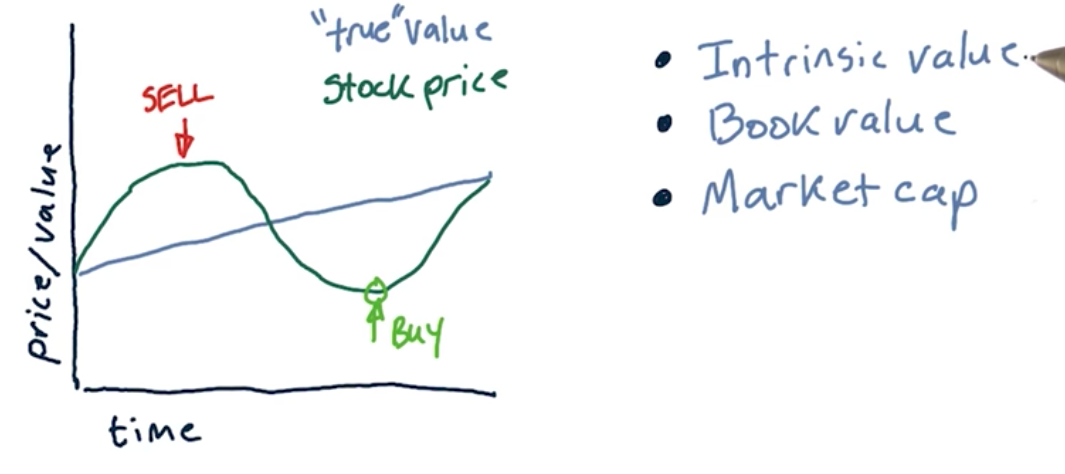 "true" value
Stock price
SELL
price/value
BUY
time
• Intrinsic value..
• Book value
• Market cap